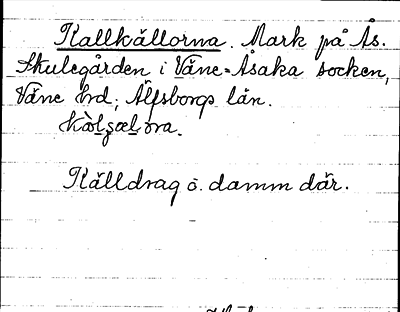 Kallkällorna. Mark på Ås.
Skulegården i Väne-Åsaka socken,
Väne hrd; Älfsborgs län.
Källdrag o. damm där.